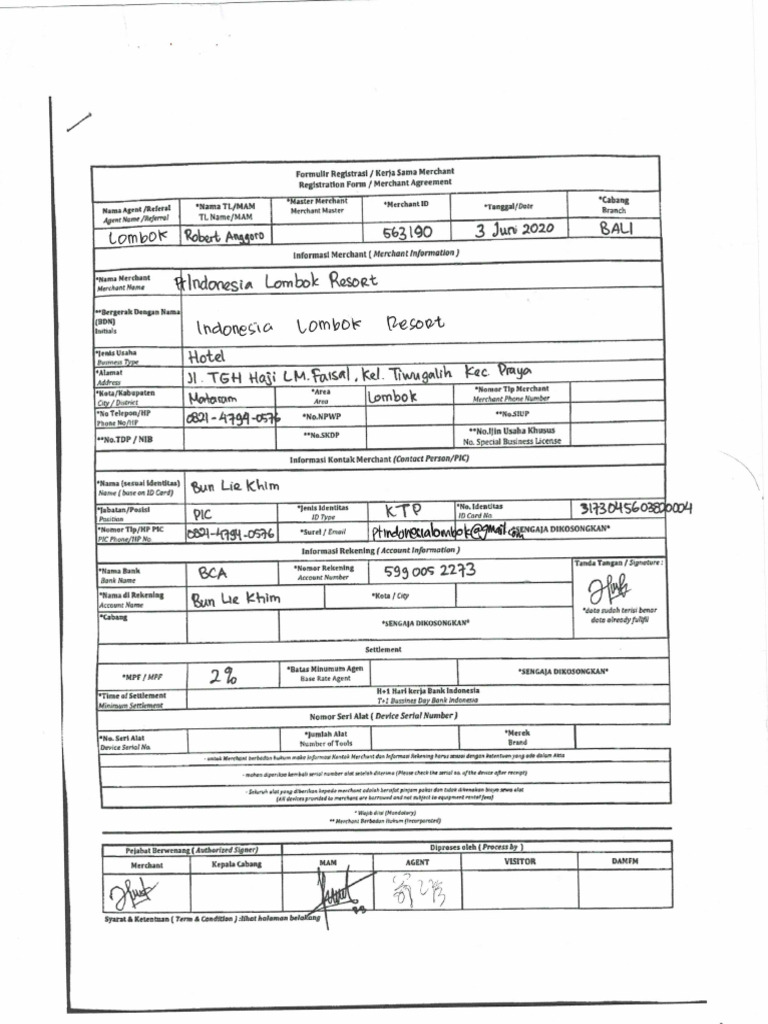 Formulir Registrasi / Kerja Sama Merchant
Registration Form / Merchant Agreement
Nama Agent /Referal *Nama TL/MAM *Master Merchant *Merchant ID *Tanggal/Date *Cabang
Agent Name /Referral TL Name/MAM Merchant Master Branch
Lombok Robert Anggoro 563190 3 Juni 2020 BALI
Informasi Merchant ( Merchant Information )
*Nama Merchant Pt Indonesia Lombok Resort
Merchant Name
**Bergerak Dengan Nama
(BDN) Indonesia Lombok Resort
Initials
*Jenis Usaha Hotel
Business Type
*Alamat Jl. TGH Haji L.M. Faisal, Kel. Tiwugalih Kec. Praya
Address
*Kota/Kabupaten Mataram *Area Lombok *Nomor Tlp Merchant
City / District Area Merchant Phone Number
*No Telepon/HP 0821-4794-0576 *No.NPWP **No.SIUP
Phone No/HP
**No.TDP / NIB **No.SKDP **No.Ijin Usaha Khusus
No. Special Business License
Informasi Kontak Merchant (Contact Person/PIC)
*Nama (sesuai identitas) Bun Lie Khim
Name ( base on ID Card)
*Jabatan/Posisi PIC *Jenis Identitas KTP *No. Identitas 3173045603820004
Position ID Type ID Card No.
*Nomor Tlp/HP PIC 0821-4794-0576 *Surel / Email ptindonesialombok@gmail.com *SENGAJA DIKOSONGKAN*
PIC Phone/HP No.
Informasi Rekening ( Account Information )
*Nama Bank BCA *Nomor Rekening 599 005 2273 Tanda Tangan / Signature :
Bank Name Account Number
*Nama di Rekening Bun Lie Khim *Kota / City
Account Name *data sudah terisi benar
*Cabang *SENGAJA DIKOSONGKAN* data already fullfil
Settlement
*MPF / MPF 2% *Batas Minumum Agen *SENGAJA DIKOSONGKAN*
Base Rate Agent
*Time of Settlement H+1 Hari kerja Bank Indonesia
Minimum Settlement T+1 Bussines Day Bank Indonesia
Nomor Seri Alat ( Device Serial Number )
*No. Seri Alat *Jumlah Alat *Merek
Device Serial No. Number of Tools Brand
- untuk Merchant berbadan hukum maka Informasi Kontak Merchant dan Informasi Rekening harus sesuai dengan ketentuan yang ada dalam Akta
- mohon diperiksa kembali serial number alat setelah diterima (Please check the serial no. of the device after receipt)
- Seluruh alat yang diberikan kepada merchant adalah bersifat pinjam pakai dan tidak dikenakan biaya sewa alat
(All devices provided to merchant are borrowed and not subject to equipment rental fees)
* Wajib diisi (Mandatory)
** Merchant Berbadan Hukum (Incorporated)
Pejabat Berwenang ( Authorized Signer) Diproses oleh ( Process by )
Merchant Kepala Cabang MAM AGENT VISITOR DAMFM
Syarat & Ketentuan ( Term & Condition ) :lihat halaman belakang